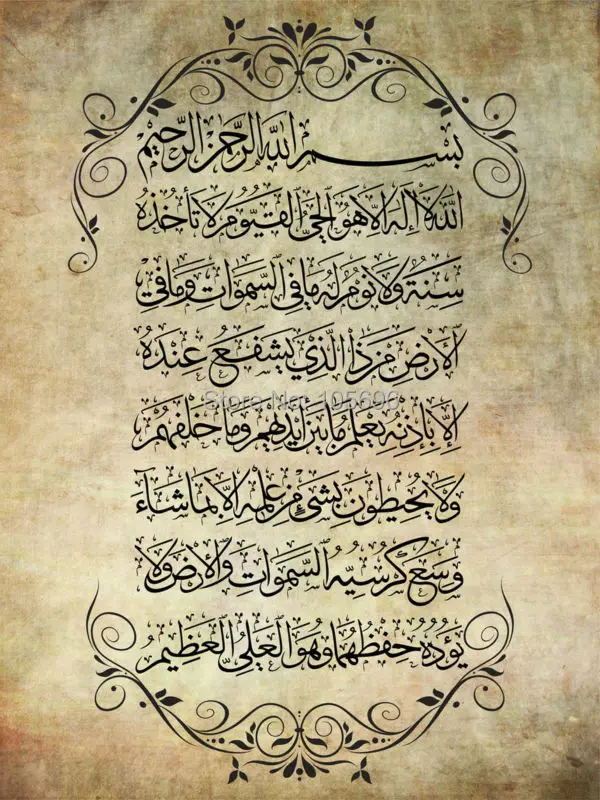 بسم الله الرحمن الرحيم
الله لا إله إلا هو الحي القيوم لا تأخذه
سنة ولا نوم له ما في السموات وما في
الأرض من ذا الذي يشفع عنده
Store No: 105696
إلا بإذنه يعلم ما بين أيديهم وما خلفهم
ولا يحيطون بشيء من علمه إلا بما شاء
وسع كرسيه السموات والأرض ولا
يؤده حفظهما وهو العلي العظيم